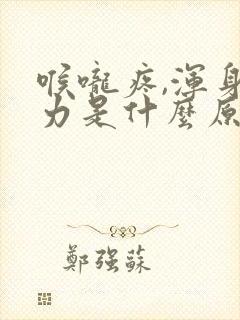 喉嚨疼,渾身
力是什麼原
鄭強蘇